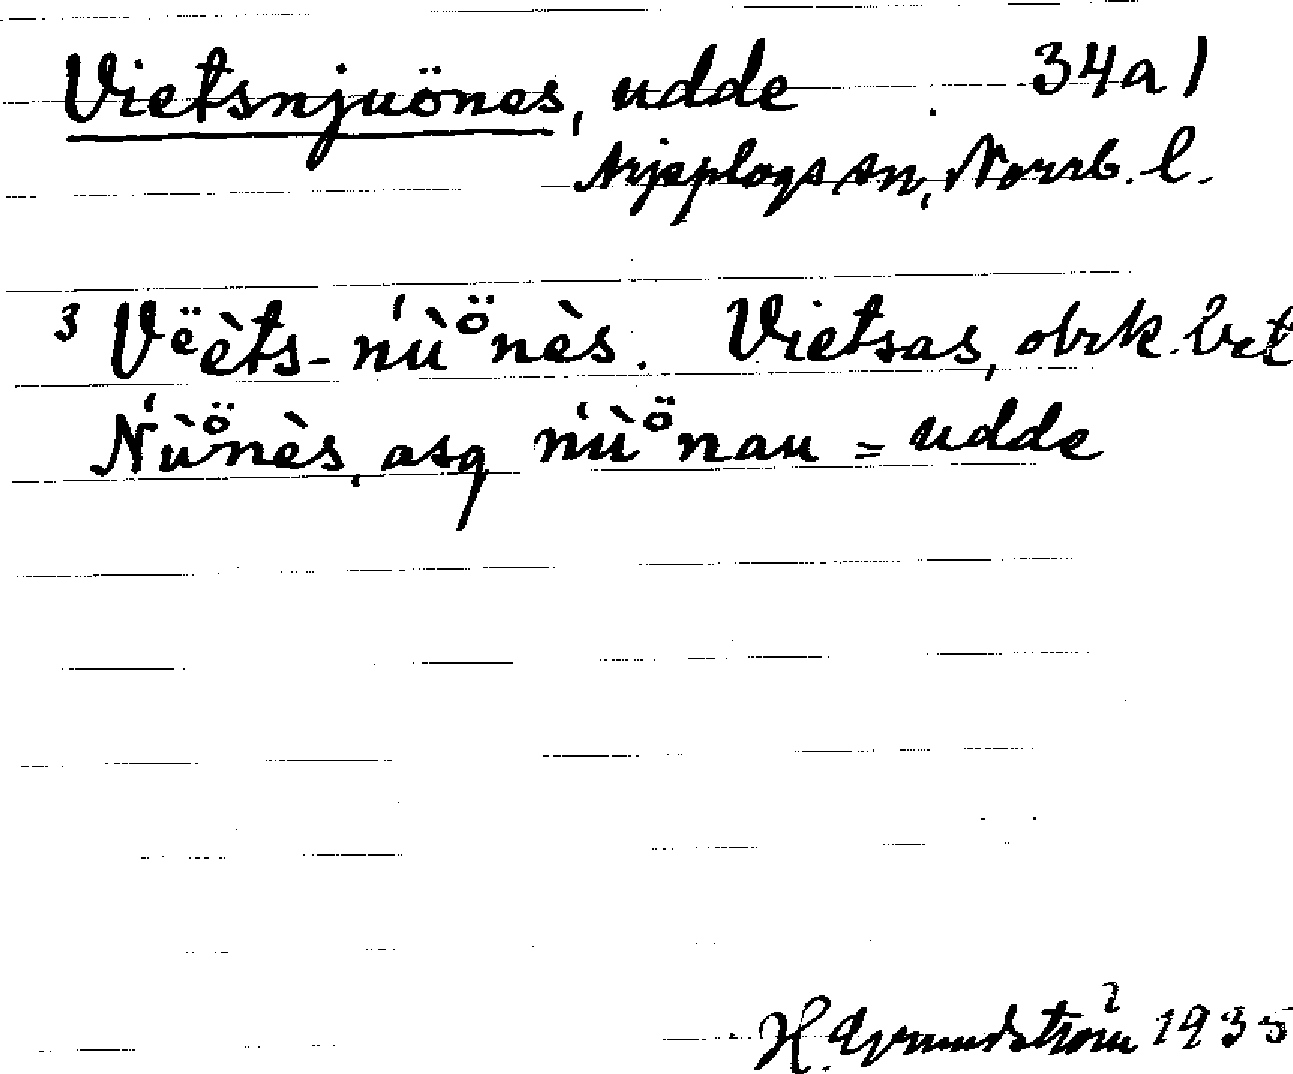 Vietsnjuönes, udde 34a1
Arjeplogs sn, Norrb. l.
3 Vëèts-ńùönès. Vietsas, obrk. bet
Ńùönès, asg ńùönau = udde
H. Grundström 1935